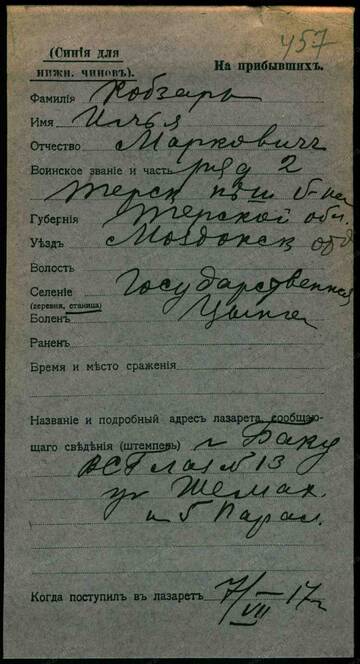 457
(Синія для
нижн. чиновъ).
На прибывшихъ.
Фамилія Кобзарь
Имя Илья
Отчество Маркович
Воинское званіе и часть ряд 2
Терск б-на
Губернія Терской обл.
Уѣздъ Моздокск отд
Волость
Селеніе Государственная
(деревня, станица)
Боленъ Цынга
Раненъ
Время и мѣсто сраженія
Названіе и подробный адресъ лазарета, сообщаю-
щаго свѣдѣнія (штемпель) г Баку
ВСГ лаз № 13
уг Шемах.
и 5 Парал.
Когда поступилъ въ лазаретъ 7/VII—17 г